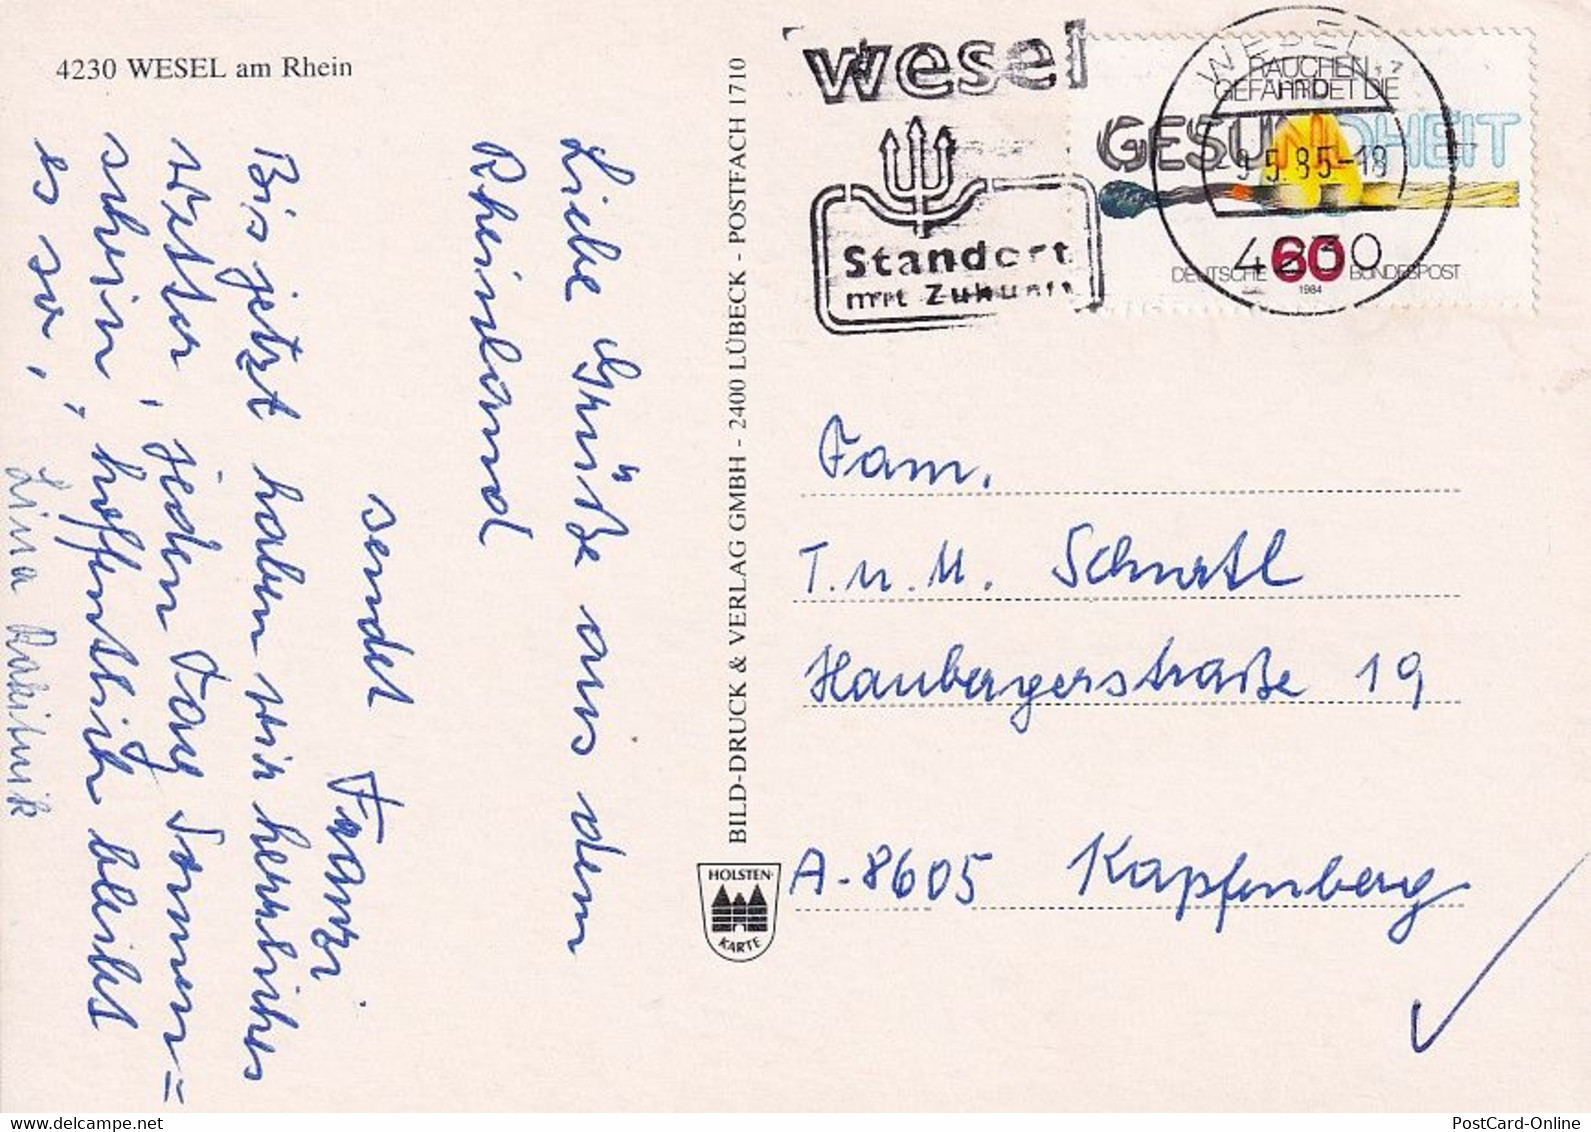 4230 WESEL am Rhein
wesel
Standort
mit Zukunft
WESEL
-9.5.85-18
4230
RAUCHEN
GEFÄHRDET DIE
GESUNDHEIT
60
DEUTSCHE BUNDESPOST
1984
Liebe Grüße aus dem
Rheinland
sendet Franzi.
Bis jetzt haben wir herrliches
Wetter, jeden Tag Sonnen=
schein, hoffentlich bleibt
es so,
Lina
BILD-DRUCK & VERLAG GMBH - 2400 LÜBECK - POSTFACH 1710
HOLSTEN-
KARTE
Fam.
T. u. M.
Haubergerstraße 19
A-8605 Kapfenberg
PostCard-Online